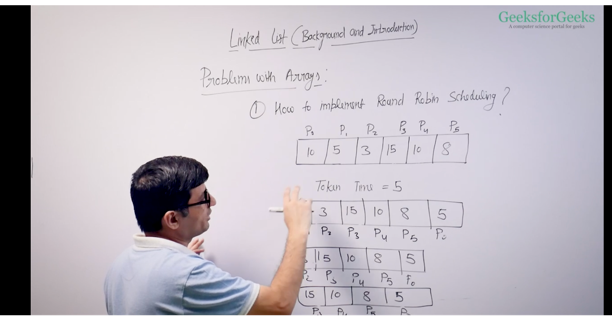 GeeksforGeeks
A computer science portal for geeks
Linked List (Background and Introduction)
Problems with Arrays:
① How to implement Round Robin Scheduling?
P₁ P₂ P₃ P₄ P₅
10 5 3 15 10 8
Token Tens = 5
3 15 10 8 5
P₂ P₃ P₄ P₅ P₀
15 10 8 5
P₂ P₃ P₄ P₅ P₀
15 10 8 5